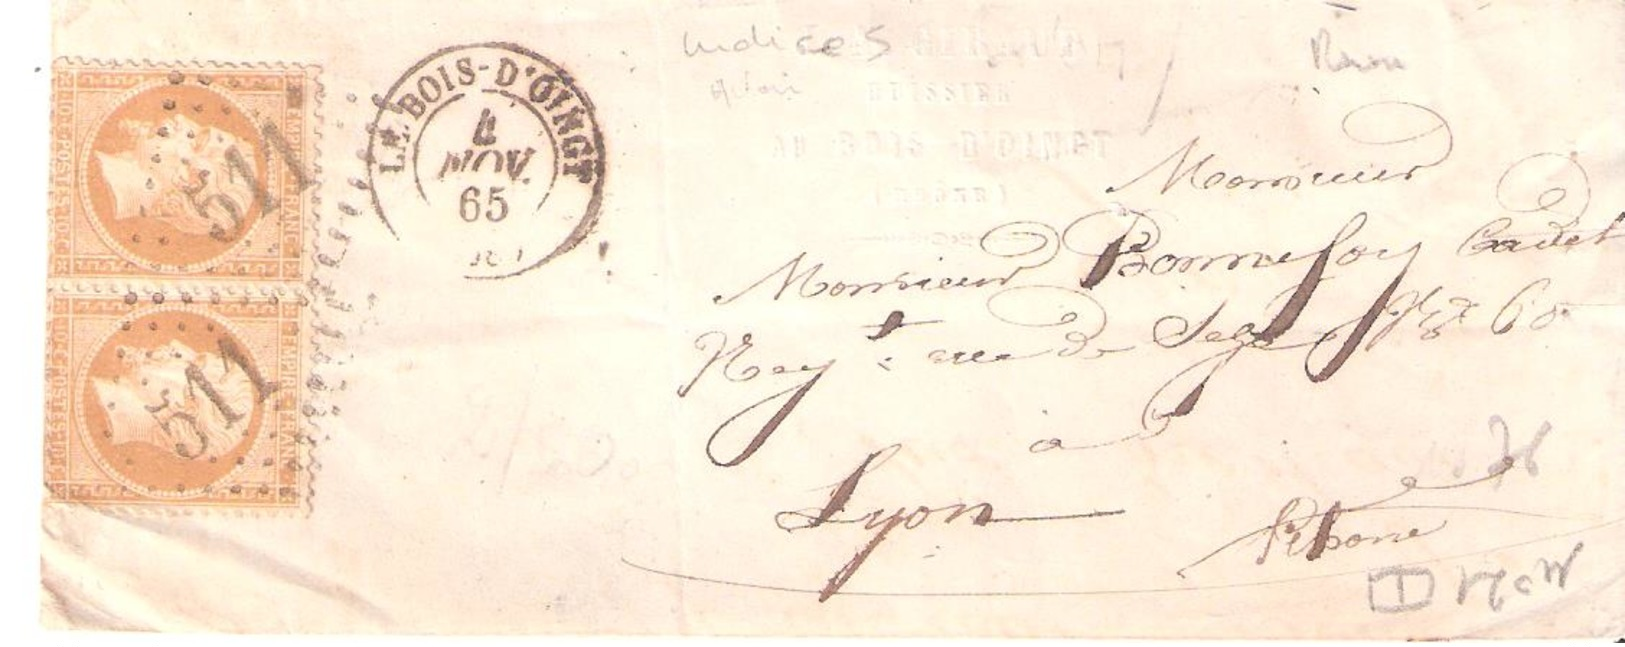 EMPIRE FRANC
10·C·POSTES·10·C
511
EMPIRE·FRANC
10·C·POSTES·10·C
511
LE BOIS-D'OINGT
4
NOV.
65
Indices
HUISSIER
AU BOIS D'OINGT
(RHÔNE)
Monsieur
Monsieur Bonnefoy Cadet
rue de No 60
à
Lyon
Rhône